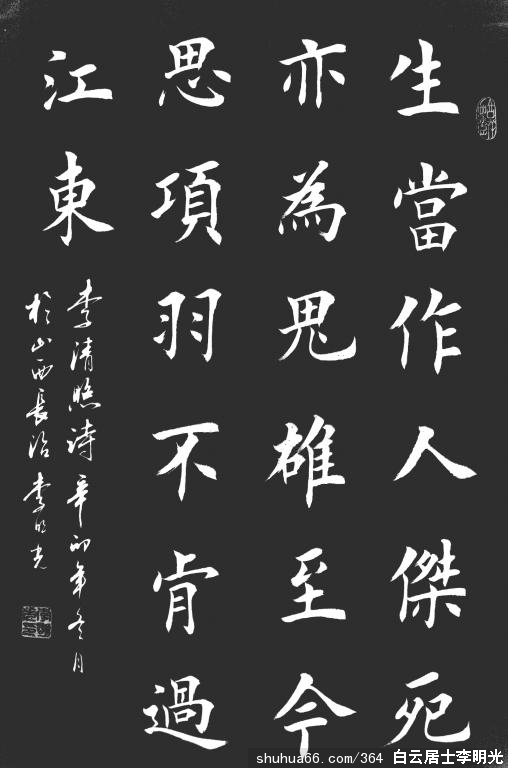 生當作人傑死
亦為鬼雄至今
思項羽不肯過
江東
李清照詩辛卯年冬月
於山西長治李明光
shuhua66.com/364 白云居士李明光